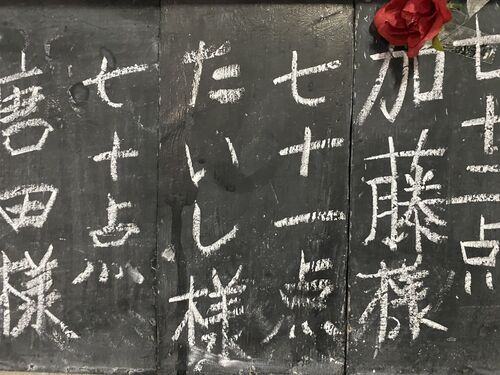 七十二点
加藤様
七十一点
たいし様
七十点
唐田様